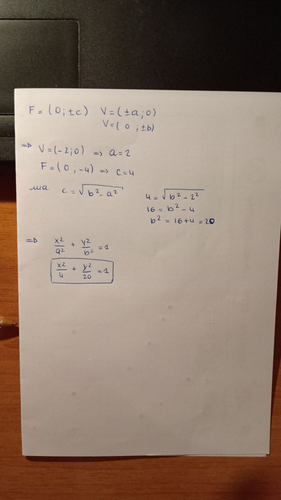 F = (0; ±c) V = (±a; 0)
V = (0; ±b)
⇒ V = (-2; 0) ⇒ a = 2
F = (0, -4) ⇒ c = 4
ma c = √(b² - a²)
4 = √(b² - 2²)
16 = b² - 4
b² = 16 + 4 = 20
⇒ x²/a² + y²/b² = 1
x²/4 + y²/20 = 1